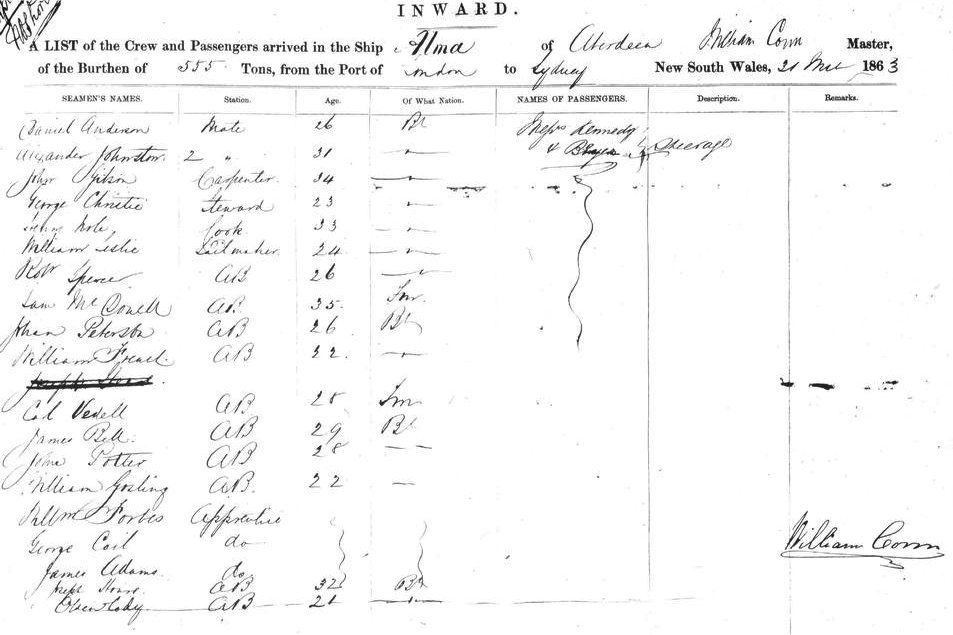 INWARD.
A LIST of the Crew and Passengers arrived in the Ship Alma of Aberdeen William Corn Master,
of the Burthen of 555 Tons, from the Port of London to Sydney New South Wales, 21 1863
SEAMEN'S NAMES. Station. Age. Of What Nation. NAMES OF PASSENGERS. Description. Remarks.
Daniel Anderson Mate 26 Bt Messrs Kennedy
Alexander Johnston 2 " 31 — " — & Steerage
John Gibson Carpenter 34 — " —
George Christie Steward 23 — " —
Cook 33 — " —
William Leslie Sailmaker 24 — " —
Robt Spence AB 26 — " —
Sam McDowell AB 35
Johan Peterson AB 26 Bt
William French AB 32 — " —
Joseph
Carl Vedell AB 28
James Bell AB 29 Bt
John Potter AB 28 — —
William Gosling AB. 22 —
William Forbes Apprentice
George Cail do
James Adams do
AB 32 Bt
AB 21 — " —
William Corn